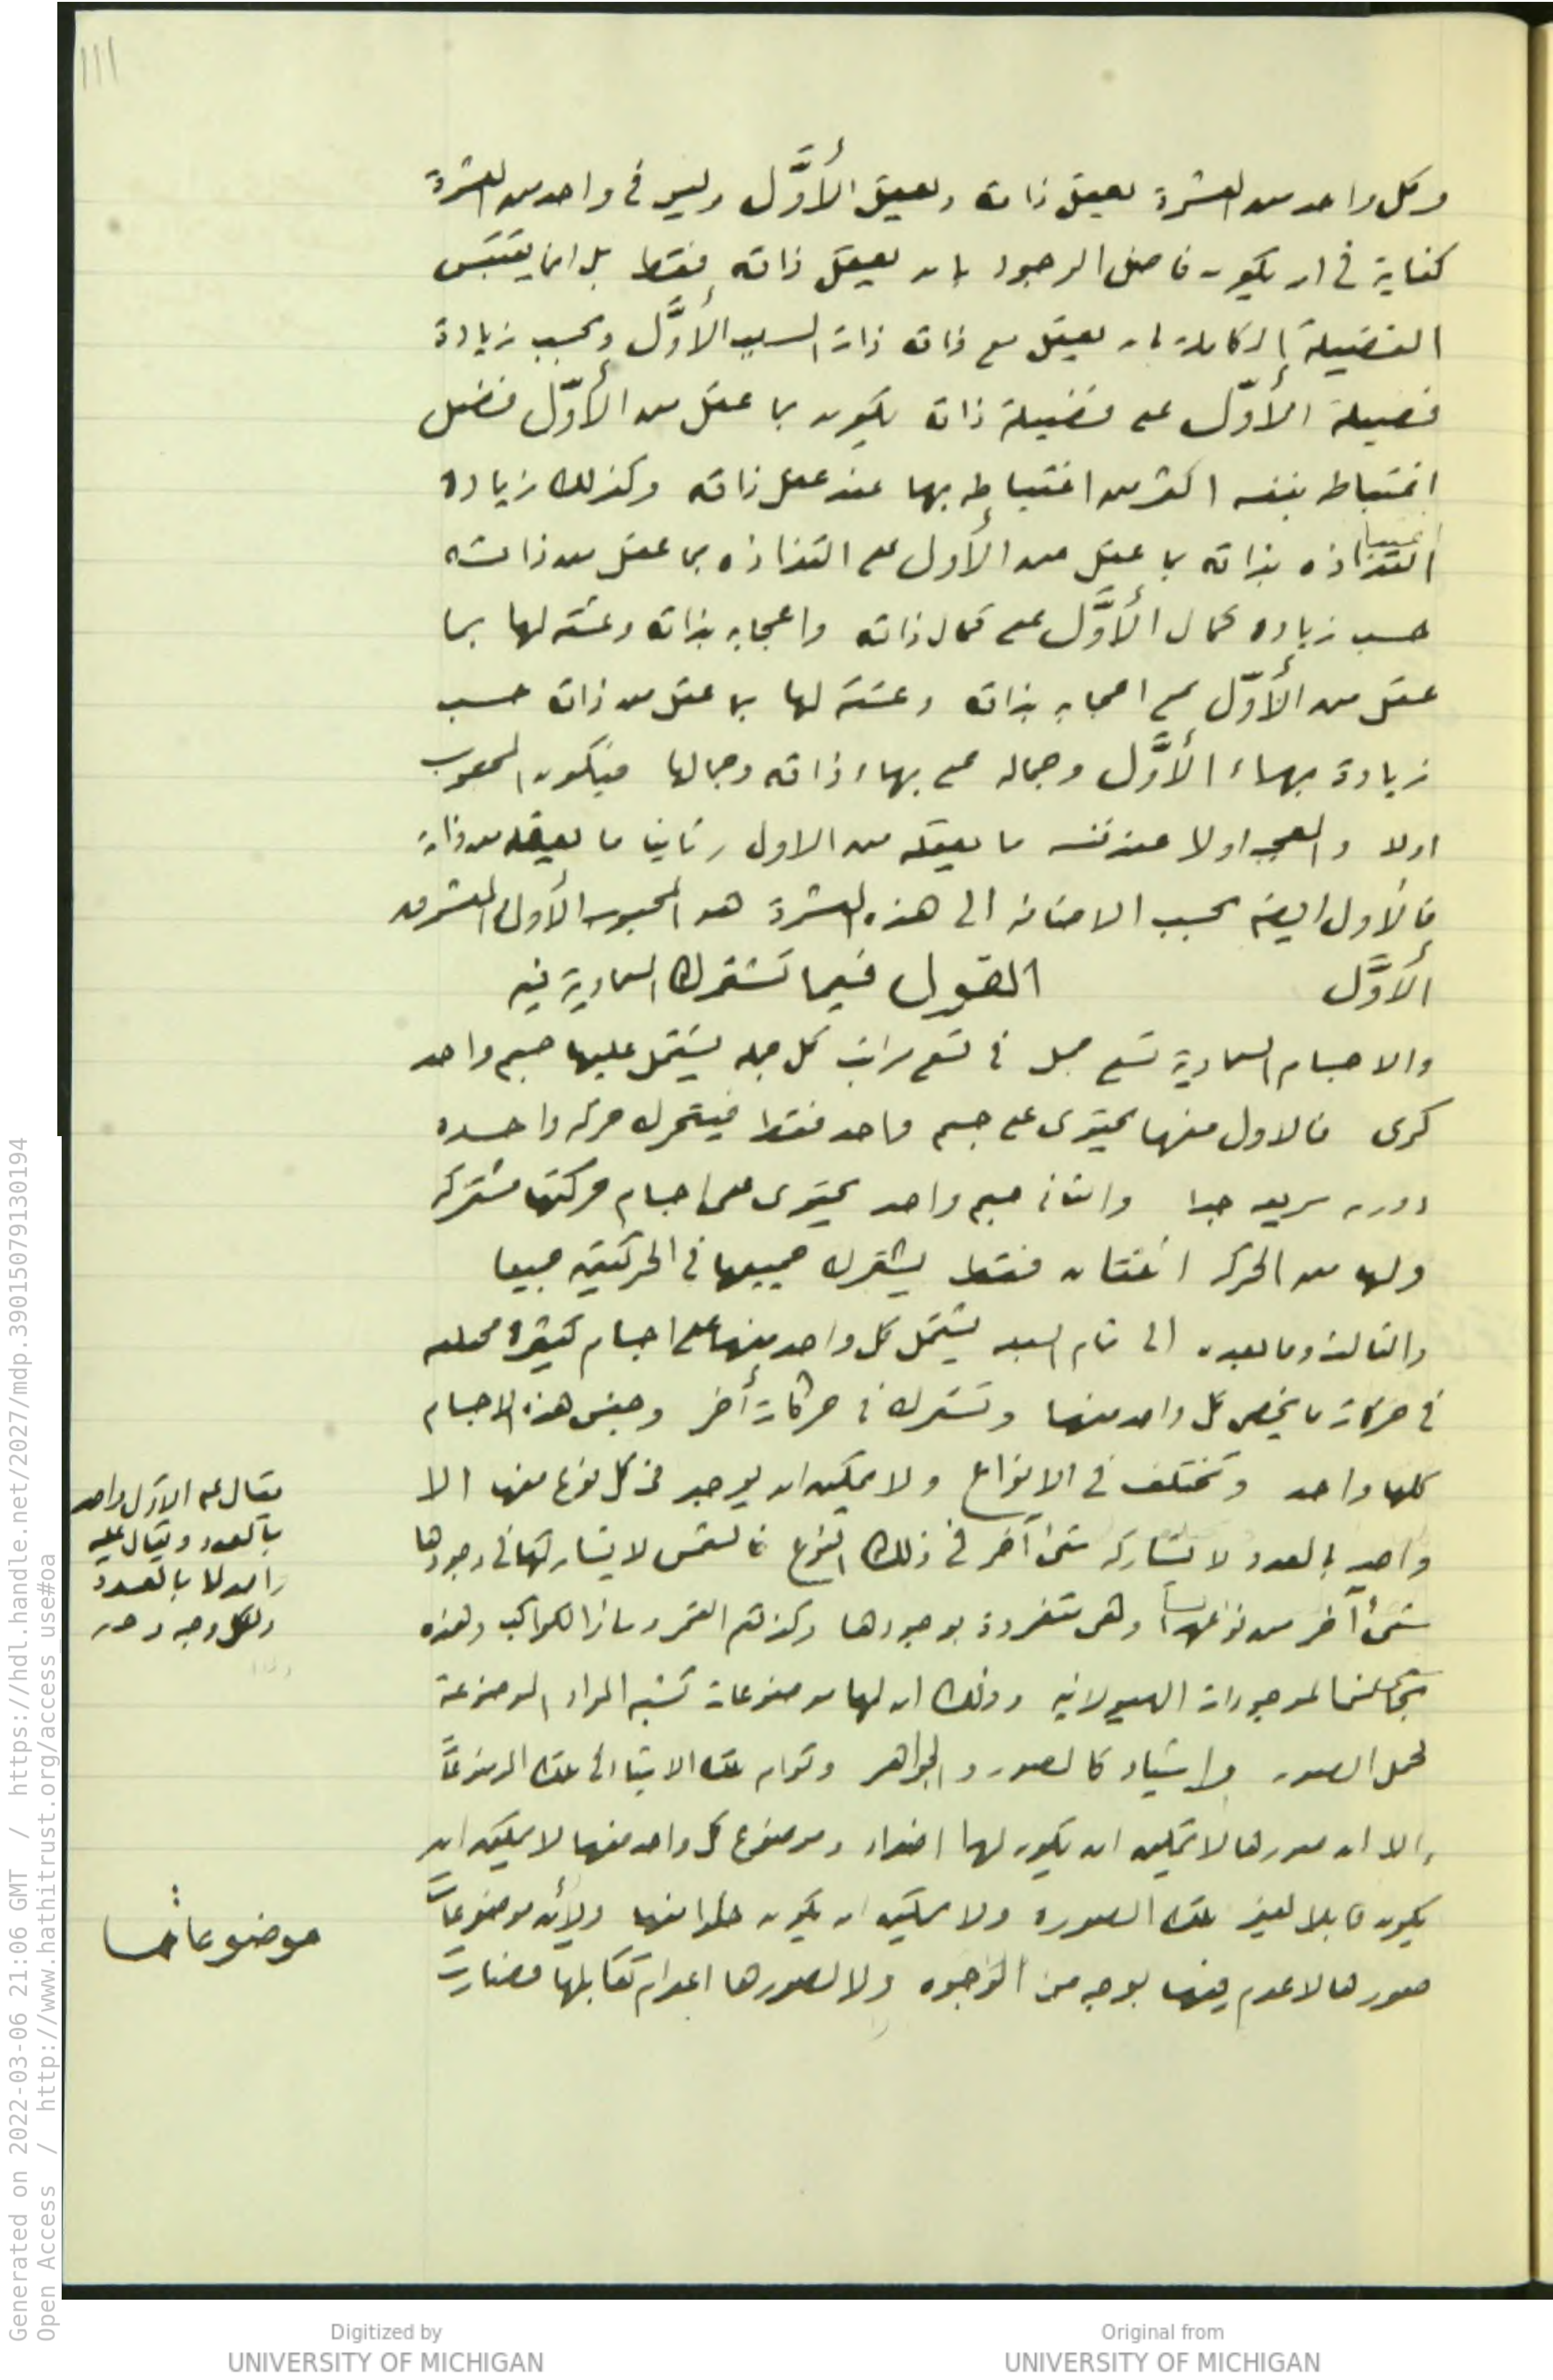 111
وكل واحد من العشرة يعقل ذاته ويعقل الأوَّل وليس في واحد من العشرة
كفاية في ان يكون فاضل الوجود بان يعقل ذاته فقط بل انما يقتبس
الفضيلة الكاملة بان يعقل مع ذاته ذات السبب الأوَّل وبحسب زيادة
فضيلة الأوّل على فضيلة ذاته يكون بما عقل من الأوّل فضل
اغتباطه بنفسه اكثر من اغتباطه بها عند عقل ذاته وكذلك زيادة
التذاذه بذاته بما عقل من الأول على التذاذه بما عقل من ذاته
حسب زياده كمال الأوَّل على كمال ذاته واعجابه بذاته وعشقه لها بما
عقل من الأوّل على اعجابه بذاته وعشقه لها بما عقل من ذاته حسب
زيادة بهاء الأوَّل وجماله على بهاء ذاته وجمالها فيكون المحبوب
اولا والمعجب اولا عند نفسه ما يعقله من الاول وثانيا ما يعقله من ذاته
فالأول ايضا بحسب الاضافة الى هذه العشرة هو المحبوب الأول والمعشوق
الأوَّل القول فيما تشترك السماوية فيه
والاجسام السماوية تسع جمل في تسع مراتب كل جمله يشتمل عليها جسم واحد
كرى فالاول منها يحتوى على جسم واحد فقط فيتحرك حركه واحده
دوريه سريعه جدا والثانى جسم واحد يحتوى على اجسام حركتها مشتركه
ولها من الحركه اثنتان فقط يشترك جميعها في الحركتين جميعا
والثالث وما بعده الى تمام السبعه يشتمل كل واحد منها على اجسام كثيره مختلفه
في حركات ما يخص كل واحد منها وتشترك في حركات أخر وجنس هذه الاجسام
كلها واحد وتختلف في الانواع ولا يمكن ان يوجد في كل نوع منها الا
واحد بالعدد لا يشاركه شئ آخر في ذلك النوع فالشمس لا يشاركها في وجودها
شئ آخر من نوعها وهى متفردة بوجودها وكذلك القمر وسائر الكواكب وهذه
تجانس الموجودات الهيولانيه وذلك ان لها موضوعات تشبه المواد الموضوعة
لحمل الصور واشياء كالصور و الجواهر وقوام تلك الاشياء في تلك الموضوعات
الا ان صورها لا يمكن ان يكون لها اضداد وموضوع كل واحد منها لا يمكن ان
يكون قابلا لغير تلك الصوره ولا يمكن ان يكون خلوا منها ولأن موضوعات
صورها لا عدم فيها بوجه من الوجوه ولا لصورها اعدام تقابلها فصارت
يقال على الاول واحد
بالعدد ويقال عليه
واحد لا بالعدد
ولكل وجه
موضوعاتها
Generated on 2022-03-06 21:06 GMT / https://hdl.handle.net/2027/mdp.39015079130194
Open Access / http://www.hathitrust.org/access_use#oa
Digitized by
UNIVERSITY OF MICHIGAN
Original from
UNIVERSITY OF MICHIGAN